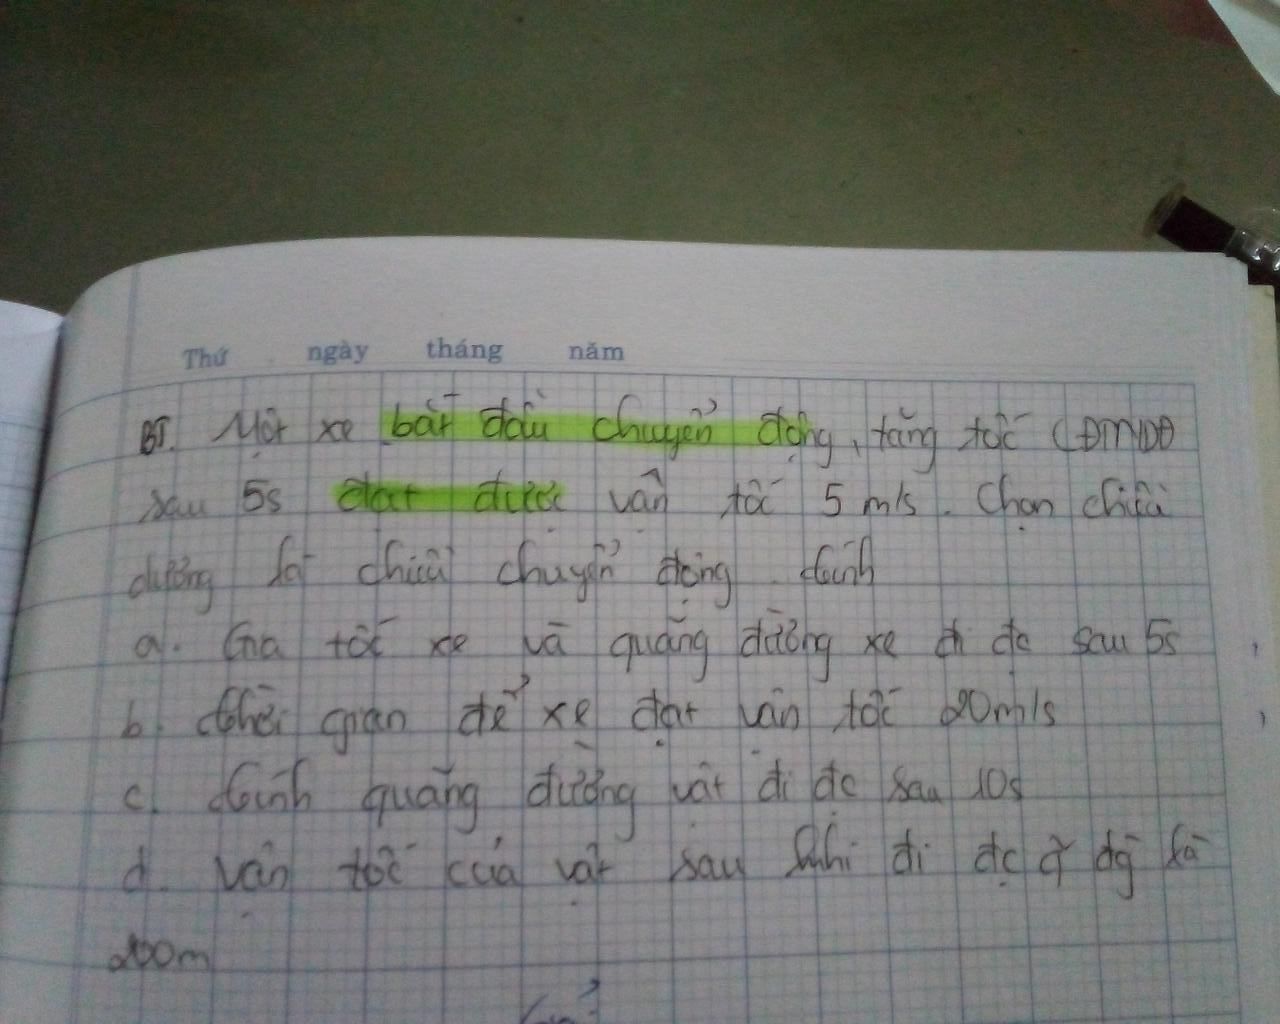 Thứ ngày tháng năm
BT. Một xe bắt đầu chuyển động, tăng tốc (ĐMNDĐ
sau 5s đạt được vận tốc 5 m/s. Chọn chiều
dương là chiều chuyển động. Tính
a. Gia tốc xe và quãng đường xe đi đc sau 5s
b. Thời gian để xe đạt vận tốc 20m/s
c. Tính quãng đường vật đi đc sau 10s
d. vận tốc của vật sau khi đi đc q đg là
200m